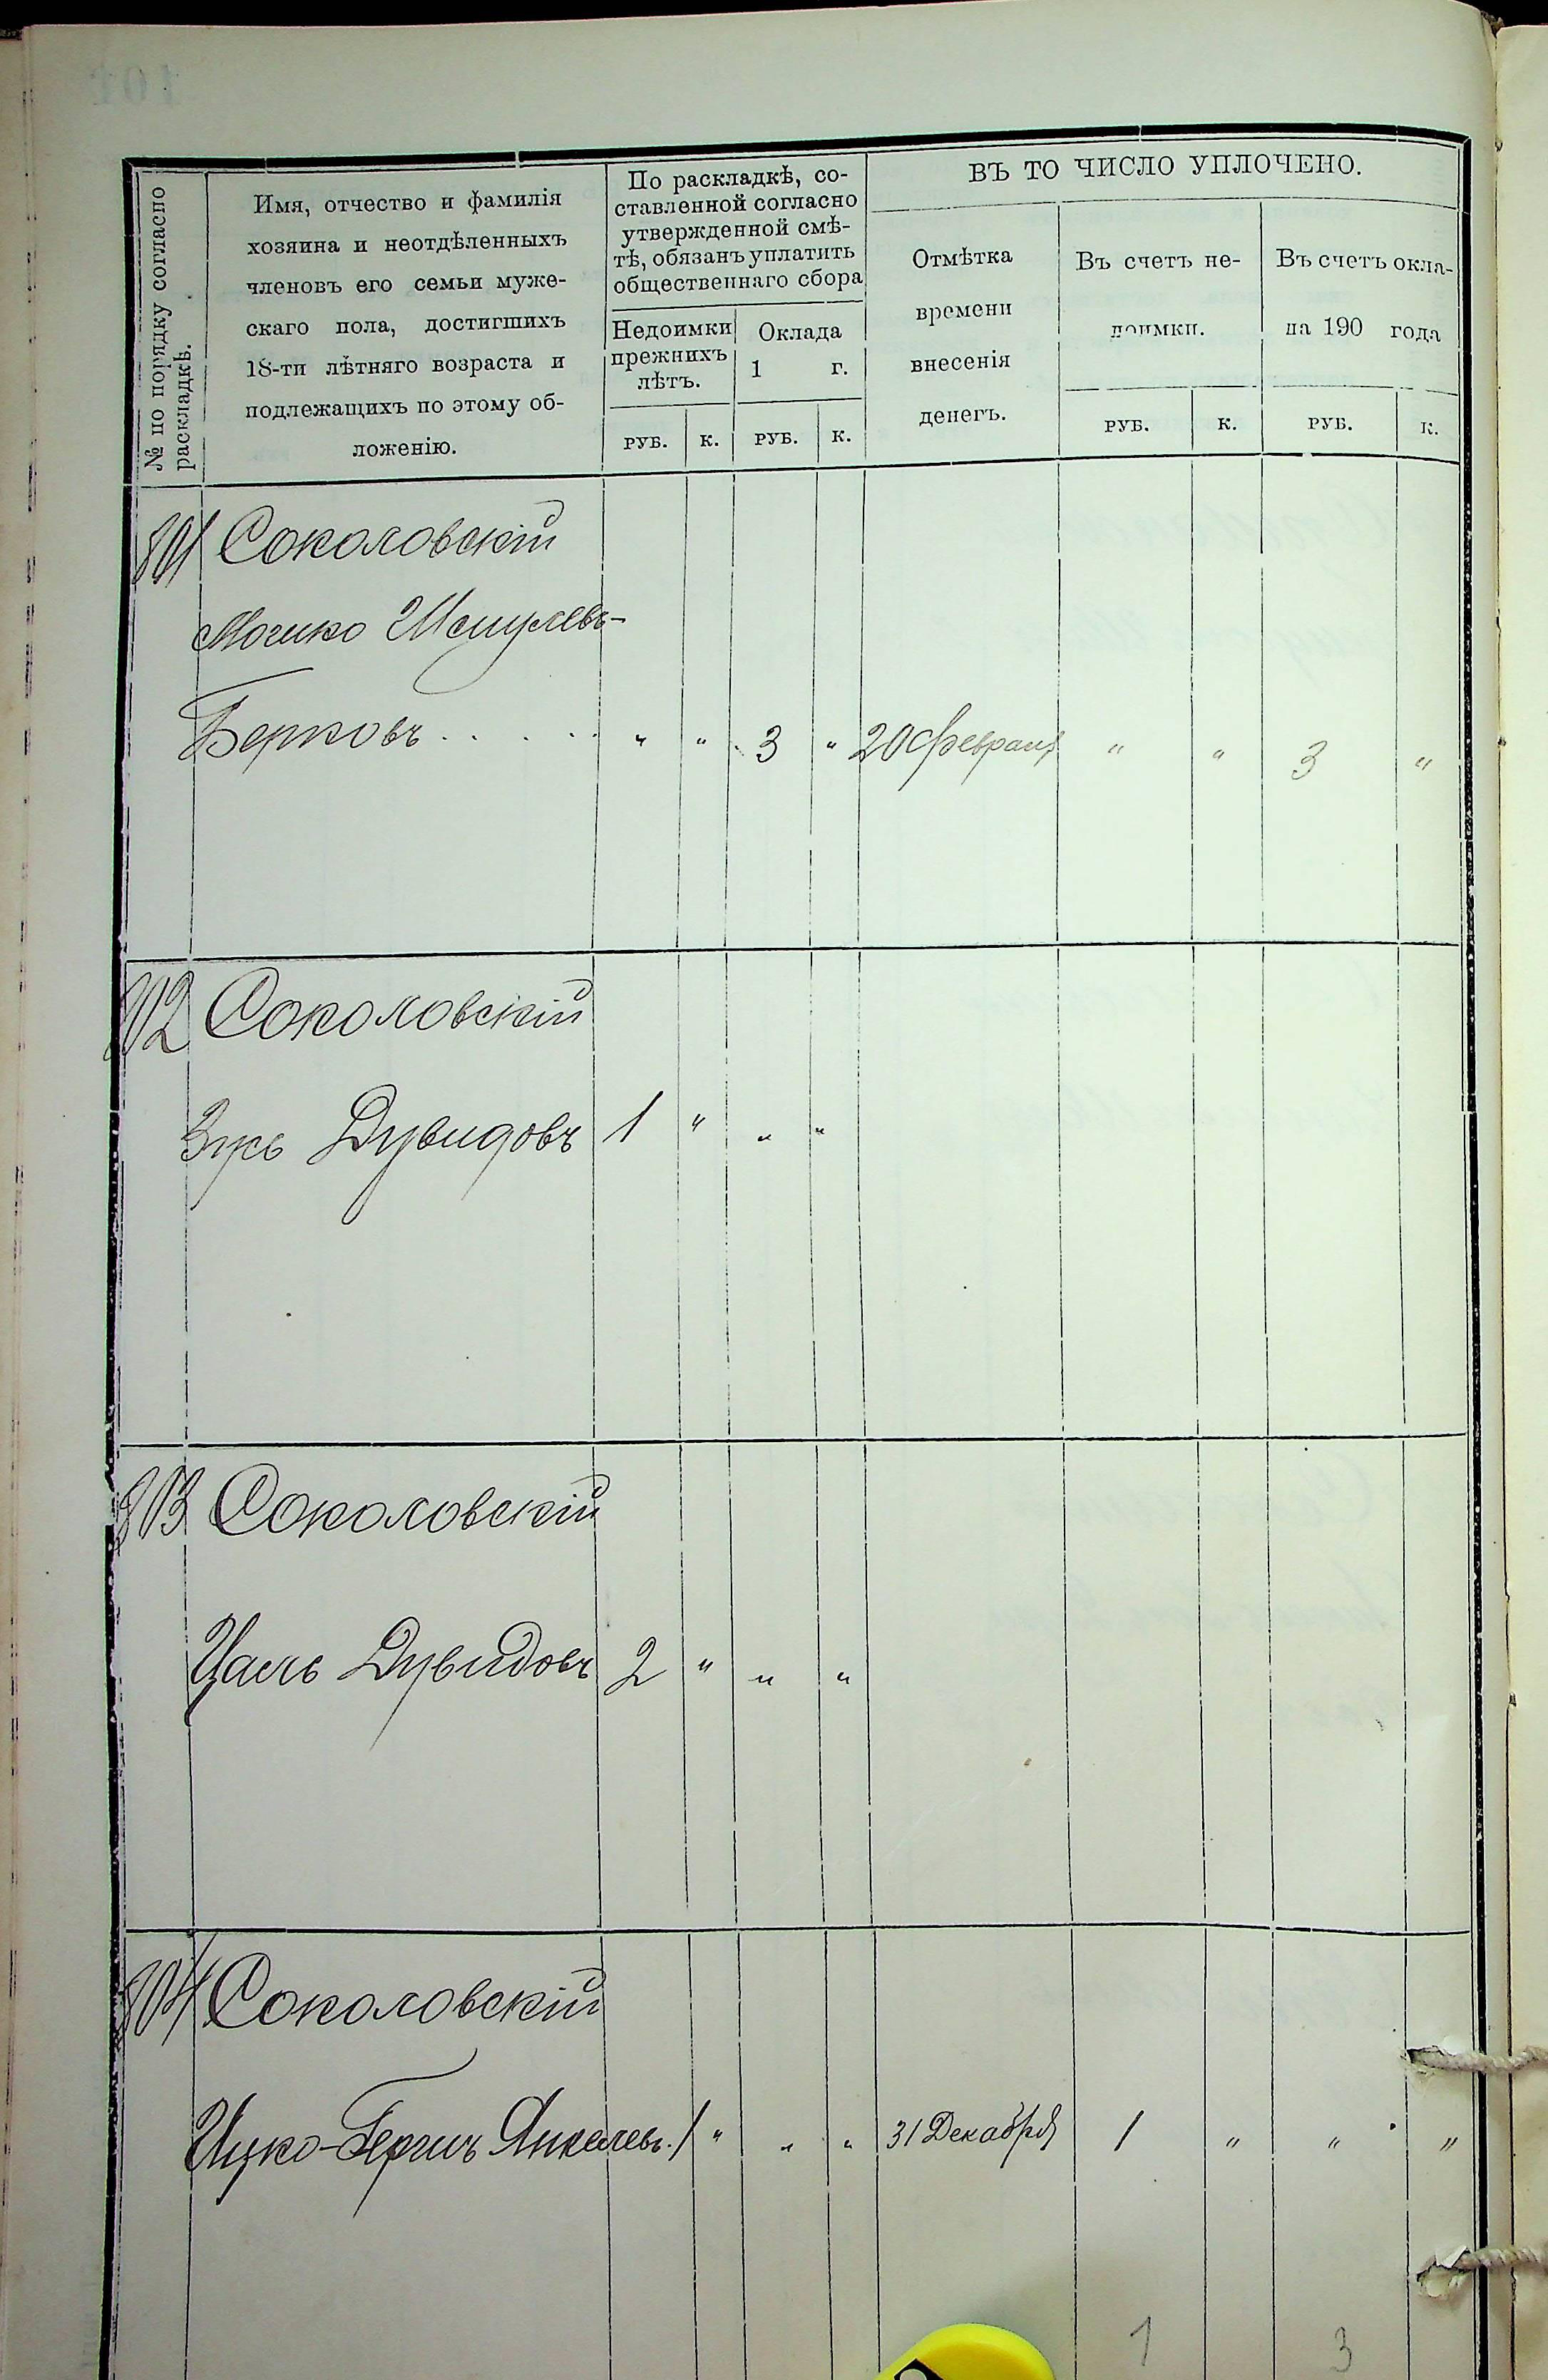 № по порядку согласно раскладкѣ.
Имя, отчество и фамилія
хозяина и неотдѣленныхъ
членовъ его семьи муже-
скаго пола, достигшихъ
18-ти лѣтняго возраста и
подлежащихъ по этому об-
ложенію.
По раскладкѣ, со-
ставленной согласно
утвержденной смѣ-
тѣ, обязанъ уплатить
общественнаго сбора
Недоимки
прежнихъ
лѣтъ.
Оклада
1 г.
РУБ. К. РУБ. К.
ВЪ ТО ЧИСЛО УПЛОЧЕНО.
Отмѣтка
времени
внесенія
денегъ.
Въ счетъ не-
доимки.
Въ счетъ окла-
да 190 года
РУБ. К. РУБ. К.
801 Соколовскій
Мошко Шмулевъ-
Берковъ . . . . . . " " 3 " 20 Февраля " " 3 "
802 Соколовскій
Зусь Дувидовъ 1 " " "
803 Соколовскій
Цаль Дувидовъ 2 " " "
804 Соколовскій
Ицко-Гершъ Янкелевъ. 1 " " " 31 Декабря 1 " " "
1 3